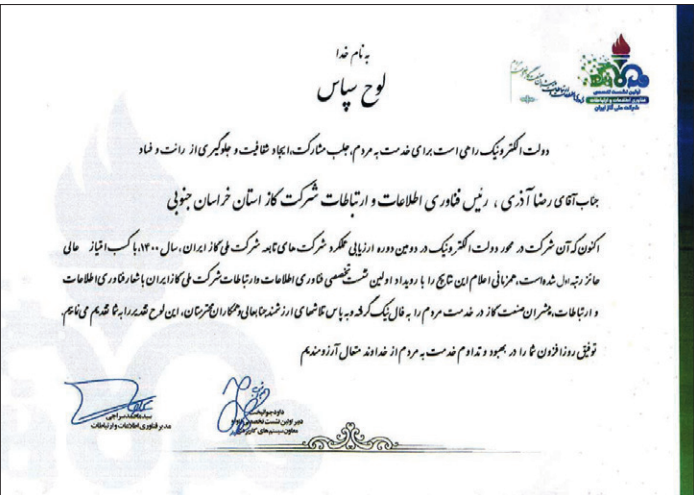 به نام خدا
لوح سپاس
اولین نشست تخصصی
فناوری اطلاعات و ارتباطات
شرکت ملی گاز ایران
دولت الکترونیک راهی است برای خدمت به مردم، جلب مشارکت، ایجاد شفافیت و جلوگیری از رانت و فساد
جناب آقای رضا آذری ، رئیس فناوری اطلاعات و ارتباطات شرکت گاز استان خراسان جنوبی
اکنون که آن شرکت در محور دولت الکترونیک در دومین دوره ارزیابی عملکرد شرکت های تابعه شرکت ملی گاز ایران، سال ۱۴۰۰، با کسب امتیاز عالی
حائز رتبه اول شده است، همزمانی اعلام این نتایج را با رویداد اولین نشست تخصصی فناوری اطلاعات و ارتباطات شرکت ملی گاز ایران با شعار فناوری اطلاعات
و ارتباطات، پیشران صنعت گاز در خدمت مردم را به فال نیک گرفته و به پاس تلاشهای ارزشمند جنابعالی و همکاران محترمتان، این لوح تقدیر را به شما تقدیم می نماییم.
توفیق روزافزون شما را در بهبود و تداوم خدمت به مردم از خداوند متعال آرزومندیم
داود جوانبخت
دبیر اولین نشست تخصصی
معاون سیستم های
سید محمد سراجی
مدیر فناوری اطلاعات و ارتباطات